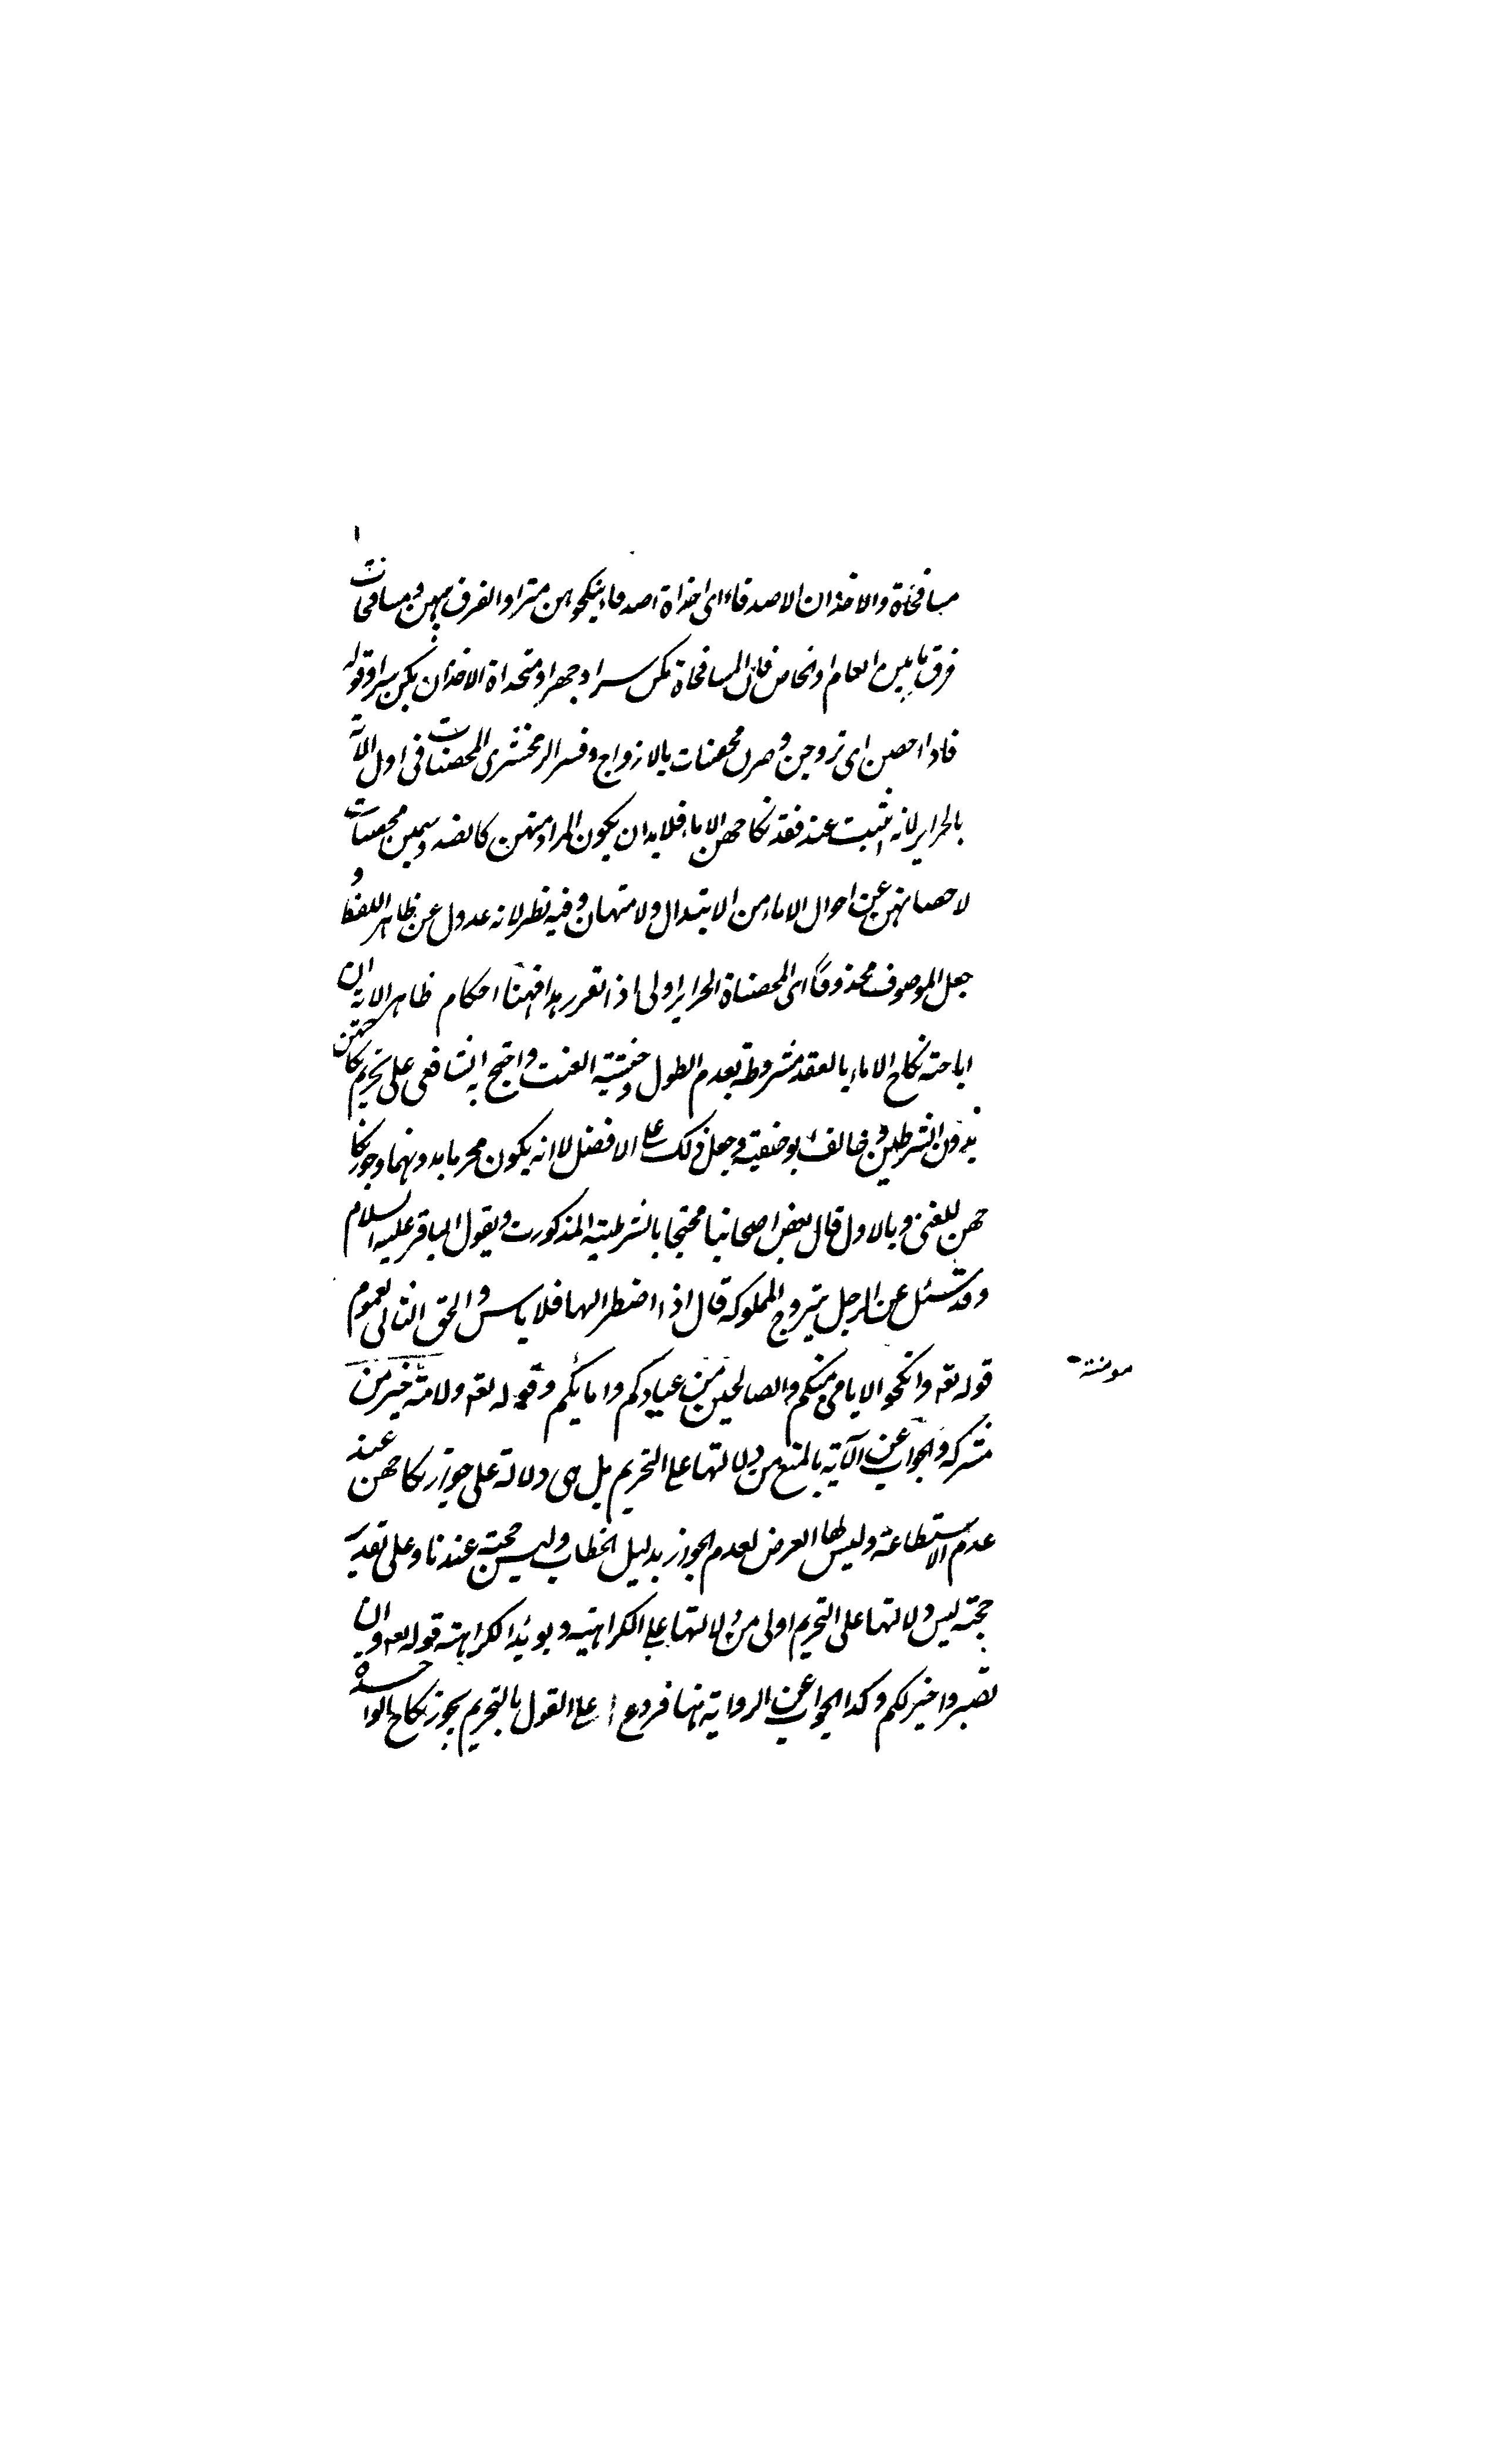 مسافحاة والاخذان الاصدقاء اى اخذاة اصدقاء ينكحوهن سترا والفرق بينهن ومسافحات
فرق ما بين العام والخاص فان المسافحاة تكن سرا وجهرا ومتخذاة الاخذان يكن سرا وقوله
فاذا احصن اى تزوجن وصرن محصنات بالازواج وفسر الزمخشرى المحصنات فى اول الآية
بالحراير لانه اثبت عند فقد نكاحهن الاماء فلا بد ان يكون المراد منهن كالضد وسمين محصنات
لاحصانهن عن احوال الاماء من الابتذال والامتهان وفيه نظر لانه عدول عن ظاهر اللفظ و
جعل الموصوف محذوفا اى المحصناة الحراير اولى اذا تقرر هذا فهنا احكام ظاهر الاية ان
اباحة نكاح الاماء بالعقد مشروطة بعدم الطول وخشية العنت واحتج به الشافعى على تحريم نكاحهن
بدون الشرطين وخالف ابو حنيفة وجعل ذلك على الافضل لا انه يكون محرما بدونهما وجوز نكا
حهن للغنى وبالاول قال بعض اصحابنا محتجا بالشرطية المذكورت وبقول الباقر عليه السلام
وقد سئل عن الرجل يتزوج المملوكة قال اذا اضطر اليها فلا باس والحق الثانى لعموم
قوله تعه وانكحوا الايامى منكم والصالحين من عبادكم وامايكم وقوله تعه ولامة خير من
مؤمنة
مشركة والجواب عن الآية بالمنع من دلالتها على التحريم بل هى دلالة على جواز نكاحهن عند
عدم الاستطاعة وليس لها العرض لعدم الجواز بدليل الخطاب وليس حجته عندنا وعلى تقدير
حجته ليس دلالتها على التحريم اولى من دلالتها على الكراهية ويويد الكراهة قوله تعه وان
تصبروا خير لكم وكذا الجواب عن الرواية هنا فروع ا على القول بالتحريم يجوز نكاح الواحدة